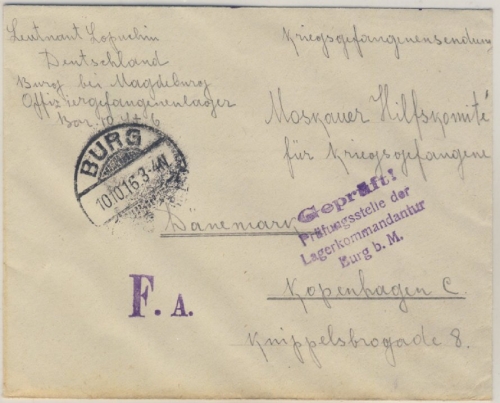 Leutnant Lopuchin
Deutschland
Burg bei Magdeburg
Offiziergefangenenlager
Bar. 10 At. 6
Kriegsgefangenensendung
Moskauer Hilfskomité
für Kriegsgefangene
BURG
10.10.16.3-4N
Dänemark
Geprüft!
Prüfungsstelle der
Lagerkommandantur
Burg b. M.
F. A.
Kopenhagen C.
Knippelsbrogade 8.